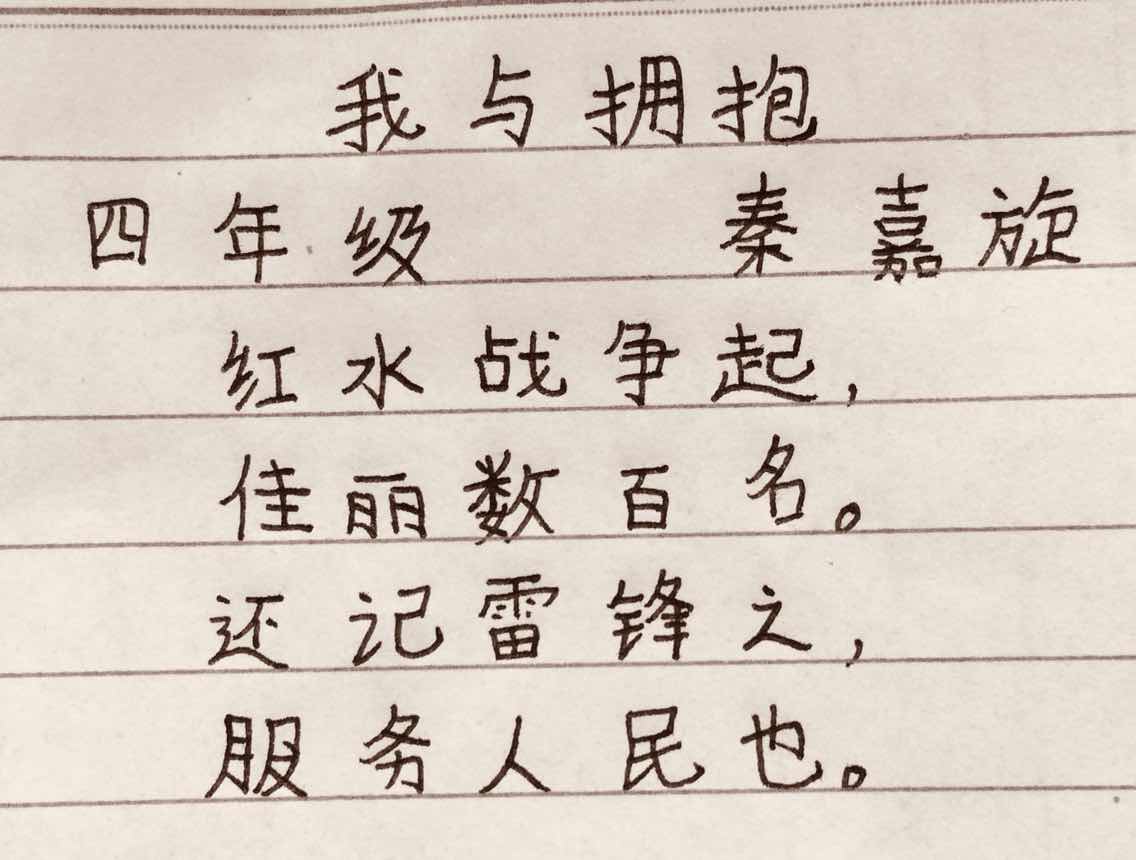 我与拥抱
四年级 秦嘉旋
红水战争起,
佳丽数百名。
还记雷锋之,
服务人民也。